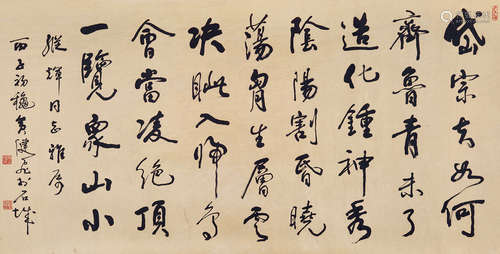 岱宗夫如何
齊魯青未了
造化鍾神秀
陰陽割昏曉
蕩胷生層云
決眦入歸鳥
會當凌絕頂
一覽衆山小
輝同志雅屬
丙子初穐於石城